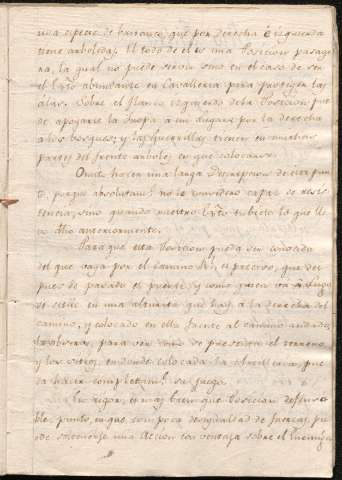 una especie de barranco, que por derecha è izquierda
tiene arboledas. El todo de el es una Posicion pasage
ra, la qual no puede servir sino en el caso de ser
el Exto abundante en Cavalleria para proteger las
alas. Sobre el flanco izquierdo de la Posicion pue
de apoyarse la tropa a un
a los bosques; y las Guerrillas tienen en muchas
partes del frente arboles en que colocarse.
Omito hacer una larga descripcion de este pun
to, porque absolutamte no le considero capaz de resis
tencia, sino quando nuestro Exto subiere lo que lle
vo dho anteriormente.
Para que esta Posicion pueda ser conocida
del que vaya por el camino Rl, es preciso, que des
pues de pasado el puente, y como quien va a
se situe en una alturita que hay a la derecha del
camino, y colocado en ella frente al camino andado,
la observe, para ver como se presenta el terreno,
y los sitios, en donde colocada la Artilleria, pue
da hacer completamte su fuego.
En rigor, es mas bien que Posicion defensi
ble, punto, en que con poca desigualdad de fuerzas, pu
ede sostenerse una Accion con ventaja sobre el Enemigo